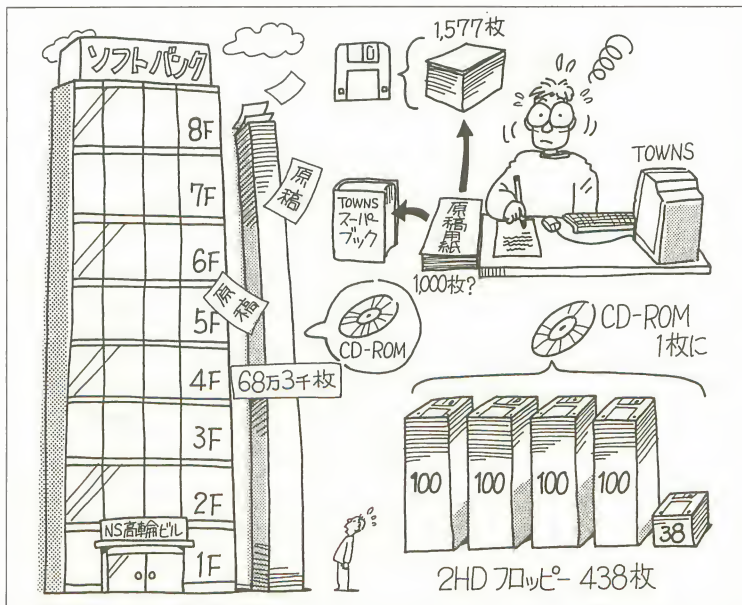 ソフトバンク
8F
7F
6F
5F
4F
3F
2F
1F
NS高輪ビル
原稿
原稿
68万3千枚
CD-ROM
1,577枚
TOWNS
スーパー
ブック
原稿用紙
1,000枚?
TOWNS
CD-ROM
1枚に
100
100
100
100
38
2HD フロッピー 438枚